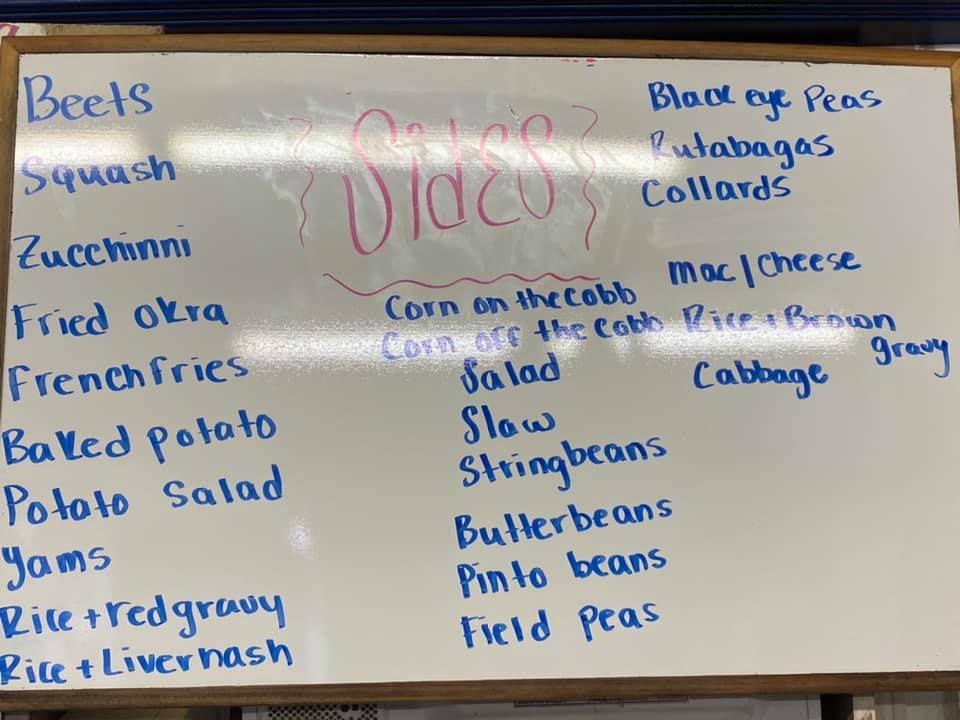 Sides
Beets
Squash
Zucchinni
Fried okra
French fries
Baked potato
Potato salad
Yams
Rice + red gravy
Rice + Liver hash
Corn on the cobb
Corn off the cobb
Salad
Slaw
Stringbeans
Butterbeans
Pinto beans
Field peas
Black eye Peas
Rutabagas
Collards
Mac/Cheese
Rice + Brown
gravy
Cabbage